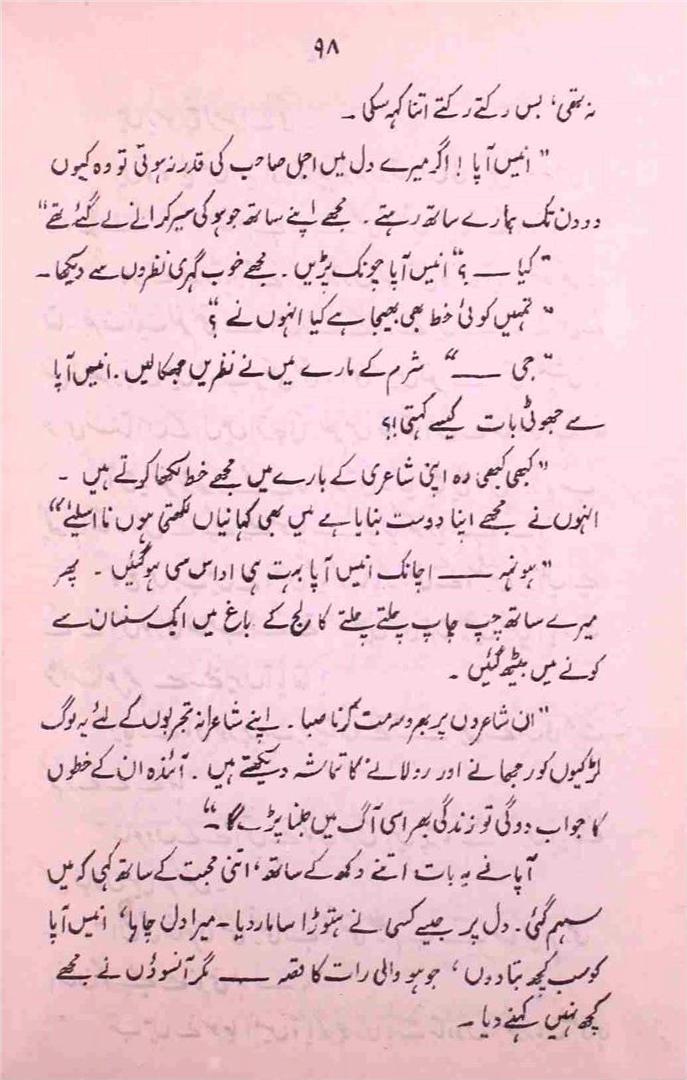 ۹۸
نہ تھی، بس رکتے رکتے اتنا کہہ سکی ۔
"انیس آپا ! اگر میرے دل میں اجمل صاحب کی قدر نہ ہوتی تو وہ کیوں
دو دن تک ہمارے ساتھ رہتے ۔ مجھے اپنے ساتھ جوہو کی سیر کرانے لے گئے تھے"
"کیا ــــ ؟" انیس آپا چونک پڑیں ۔ مجھے خوب گہری نظروں سے دیکھا ۔
"تمہیں کوئی خط بھی بھیجا ہے کیا انہوں نے ؟"
"جی ــــ" شرم کے مارے میں نے نظریں جھکا لیں ۔ انیس آپا
سے جھوٹی بات کیسے کہتی !؟
"کبھی کبھی وہ اپنی شاعری کے بارے میں مجھے خط لکھا کرتے ہیں ۔
انہوں نے مجھے اپنا دوست بنایا ہے میں بھی کہانیاں لکھتی ہوں نا اسلئے"
"ہونہہ ــــ اچانک انیس آپا بہت ہی اداس سی ہو گئیں ۔ پھر
میرے ساتھ چپ چاپ چلتے چلتے کالج کے باغ میں ایک سنسان سے
کونے میں بیٹھ گئیں ۔
"ان شاعروں پر بھروسہ مت کرنا صبا ۔ اپنے شاعرانہ تجربوں کے لئے یہ لوگ
لڑکیوں کو رجھانے اور رولانے کا تماشہ دیکھتے ہیں ۔ آئندہ ان کے خطوں
کا جواب دوگی تو زندگی بھر اسی آگ میں جلنا پڑے گا ۔"
آپا نے یہ بات اتنے دکھ کے ساتھ، اتنی محبت کے ساتھ کہی کہ میں
سہم گئی ۔ دل پر جیسے کسی نے ہتوڑا سا مار دیا ۔ میرا دل چاہا، انیس آپا
کو سب کچھ بتا دوں، جوہو والی رات کا قصہ ــــ مگر آنسوؤں نے مجھے
کچھ نہیں کہنے دیا ۔